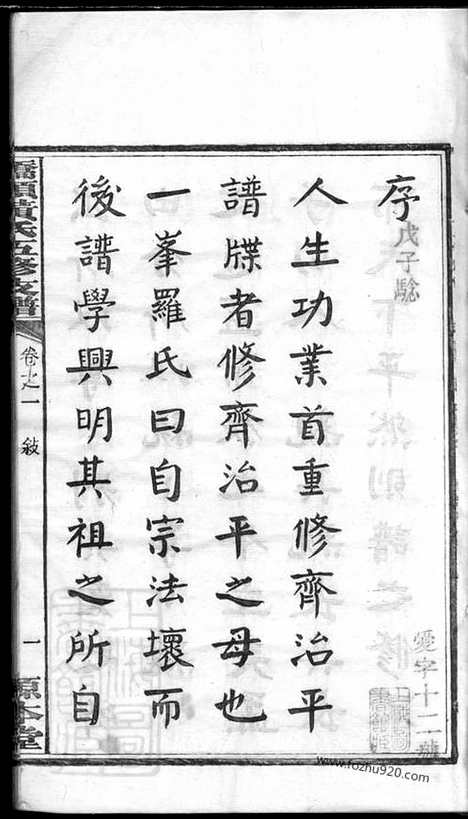 序
戊子騐
人生功業首重修齊治平
譜牒者修齊治平之母也
一峯羅氏曰自宗法壞而
後譜學興明其祖之所自
黃氏五修支譜
卷之一
敘
一
源本堂
愛字十二號
www.fozhu920.com